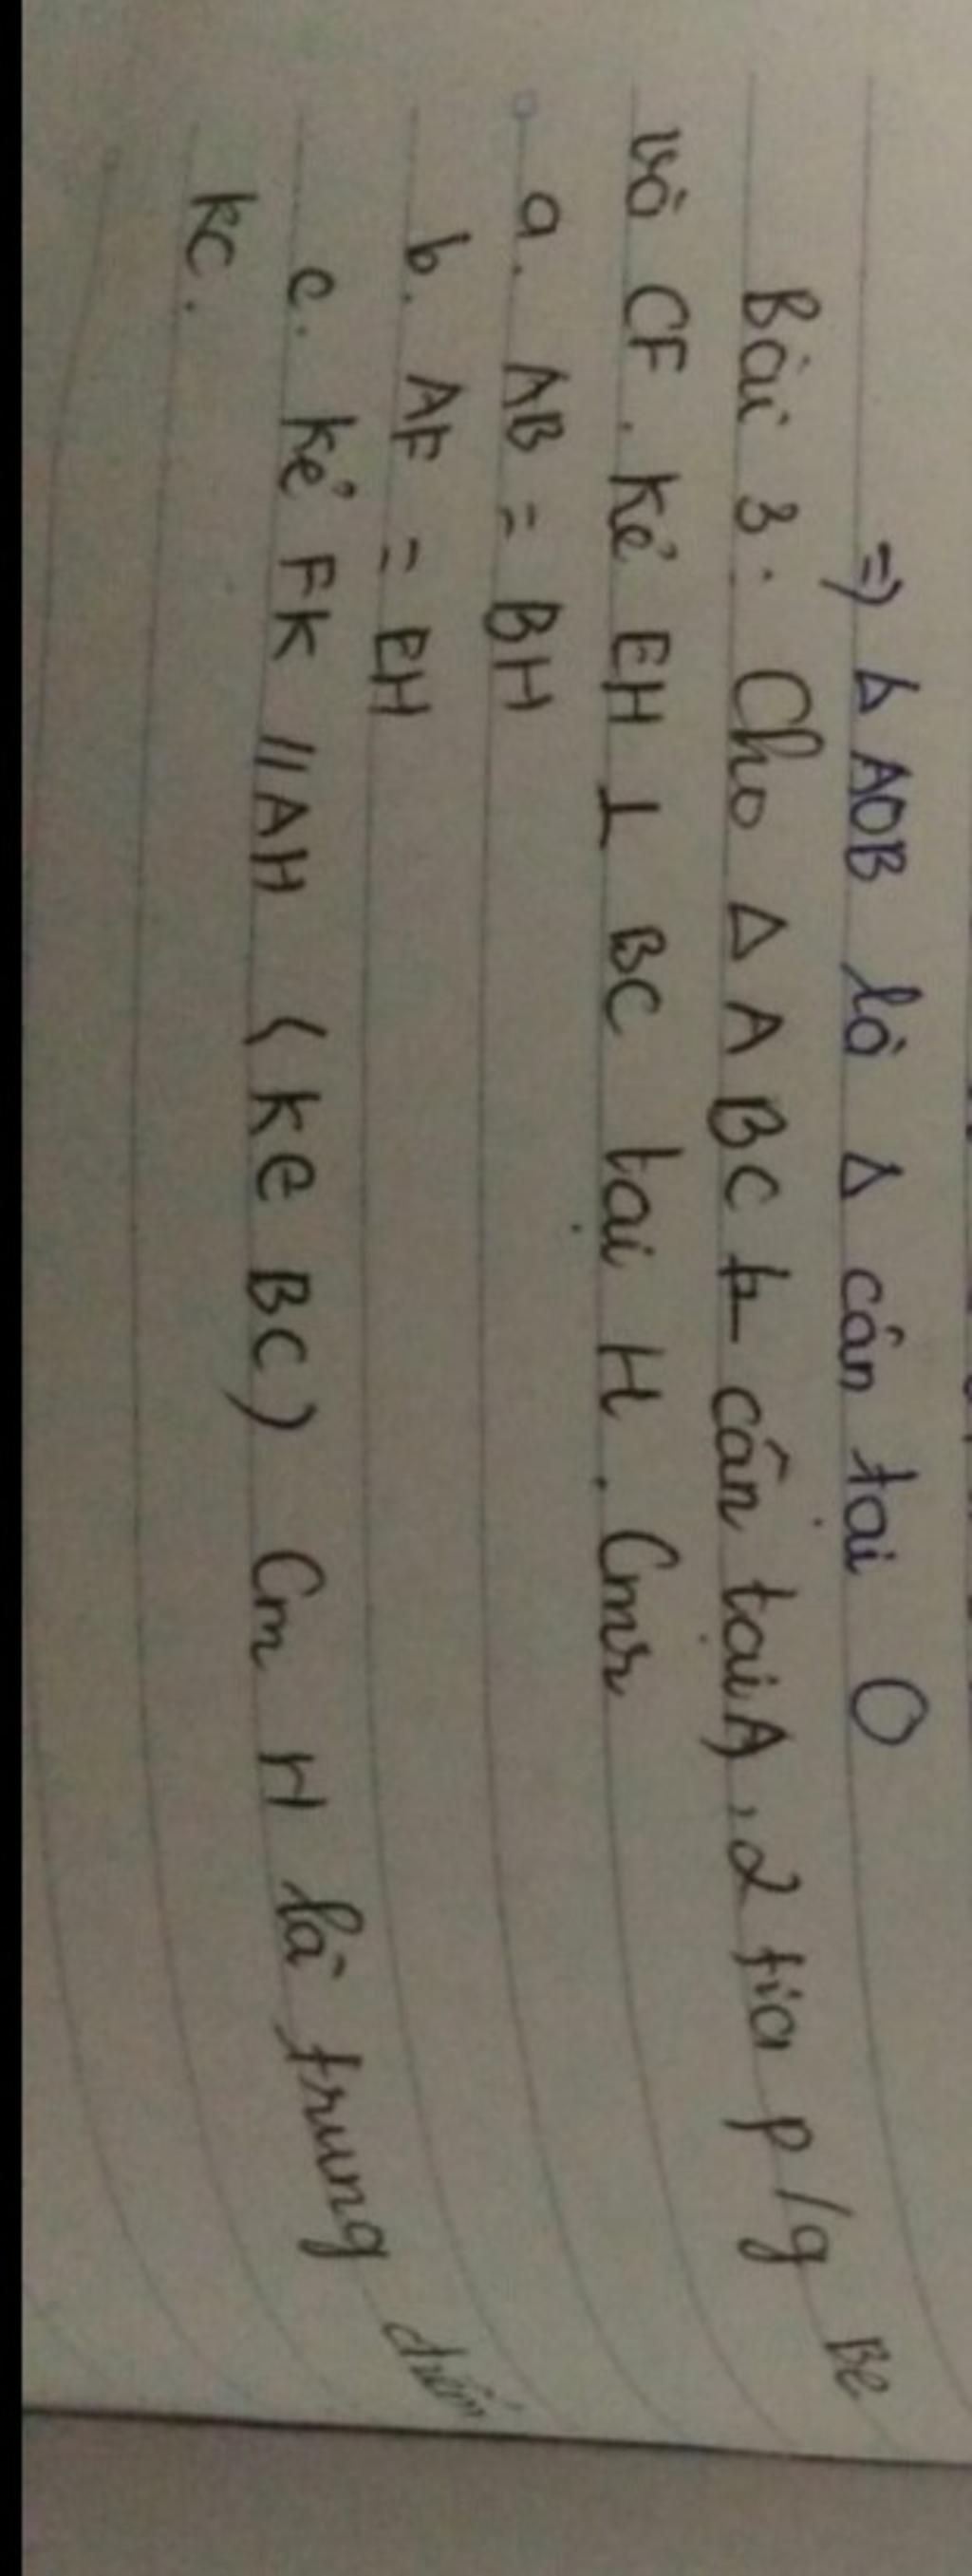 =) Δ AOB là Δ cân tại O
Bài 3: Cho Δ ABC cân tại A, 2 tia p/g BE
và CF. Kẻ EH ⊥ BC tại H. Cmr
a. AB = BH
b. AF = EH
c. Kẻ FK // AH (K e BC) Cm H là trung điểm
KC.